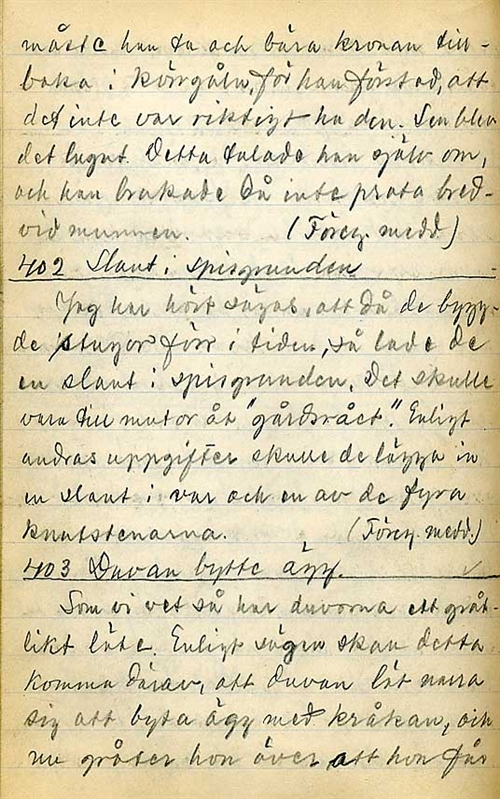 måste han ta och bära kronan till-
baka i körrgåln, för han förstod, att
det inte var riktigt ha den. Sen blev
det lugnt. Detta talade han själv om,
och han brukade då inte prata bred-
vid munnen. (Föreg. medd.)
402 Slant i spisgrunden
Jag har hört sägas, att då de bygg-
de stugor förr i tiden, så lade de
en slant i spisgrunden. Det skulle
vara till mutor åt "gårdsrået". Enligt
andras uppgifter skulle de lägga in
en slant i var och en av de fyra
knutstenarna. (Föreg. medd.)
403 Duvan bytte ägg.
Som vi vet så har duvorna ett gråt-
likt läte. Enligt sägen skall detta
komma därav, att duvan lät narra
sig att byta ägg med kråkan, och
nu gråter hon över att hon får